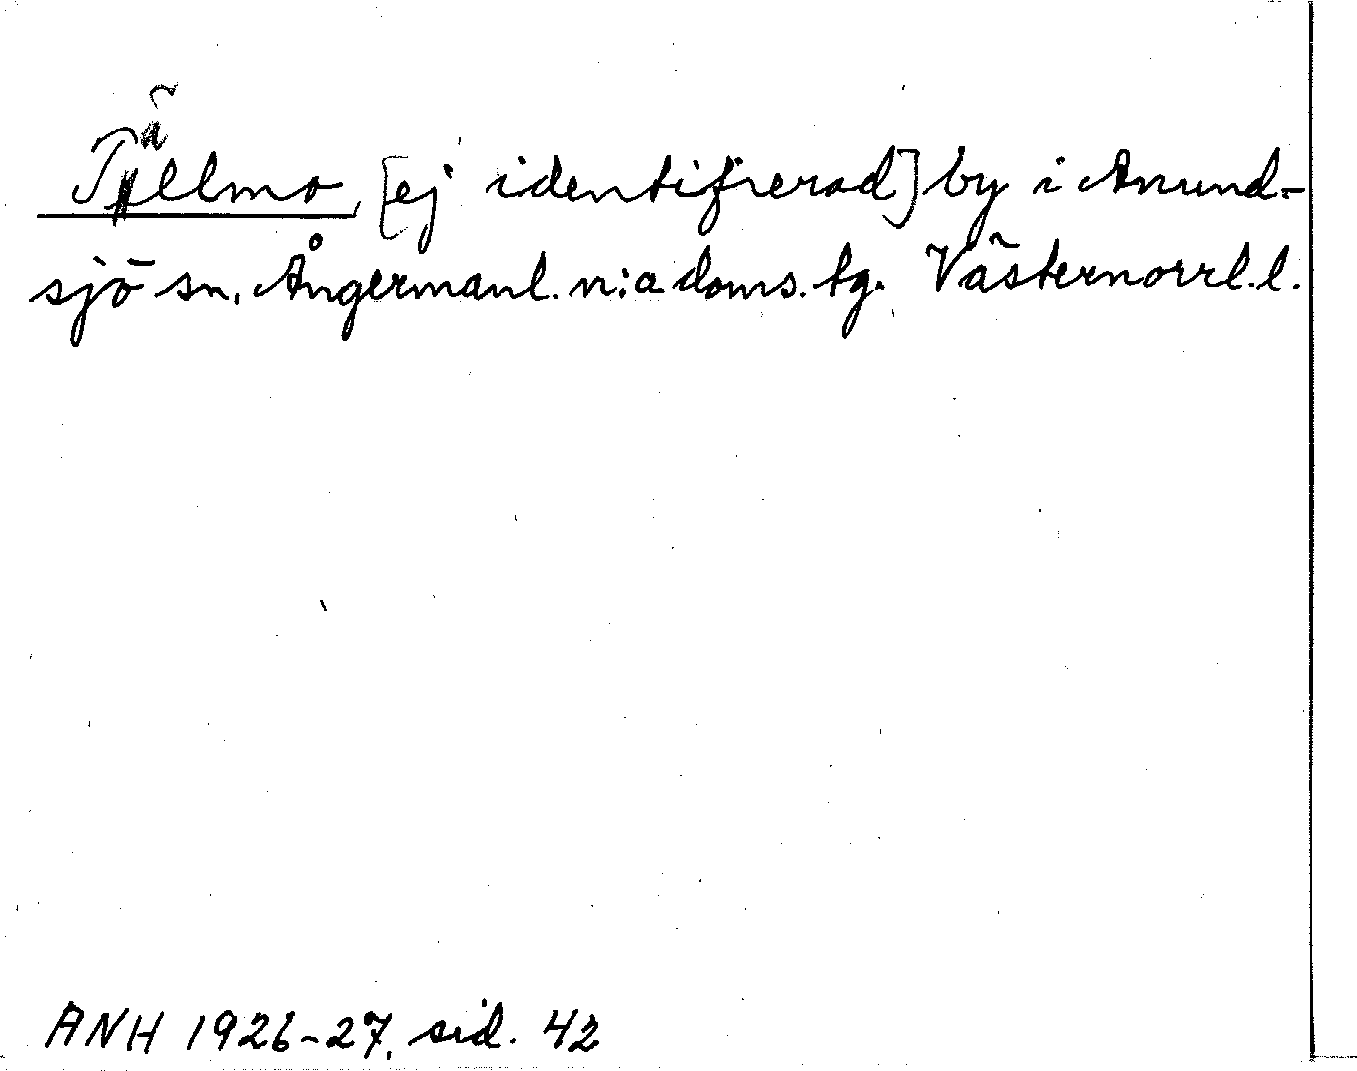 Tällmo, [ej identifierad] by i Anund-
sjö sn. Ångermanl. n:a doms. tg. Västernorrl. l.
ANH 1926-27, sid. 42